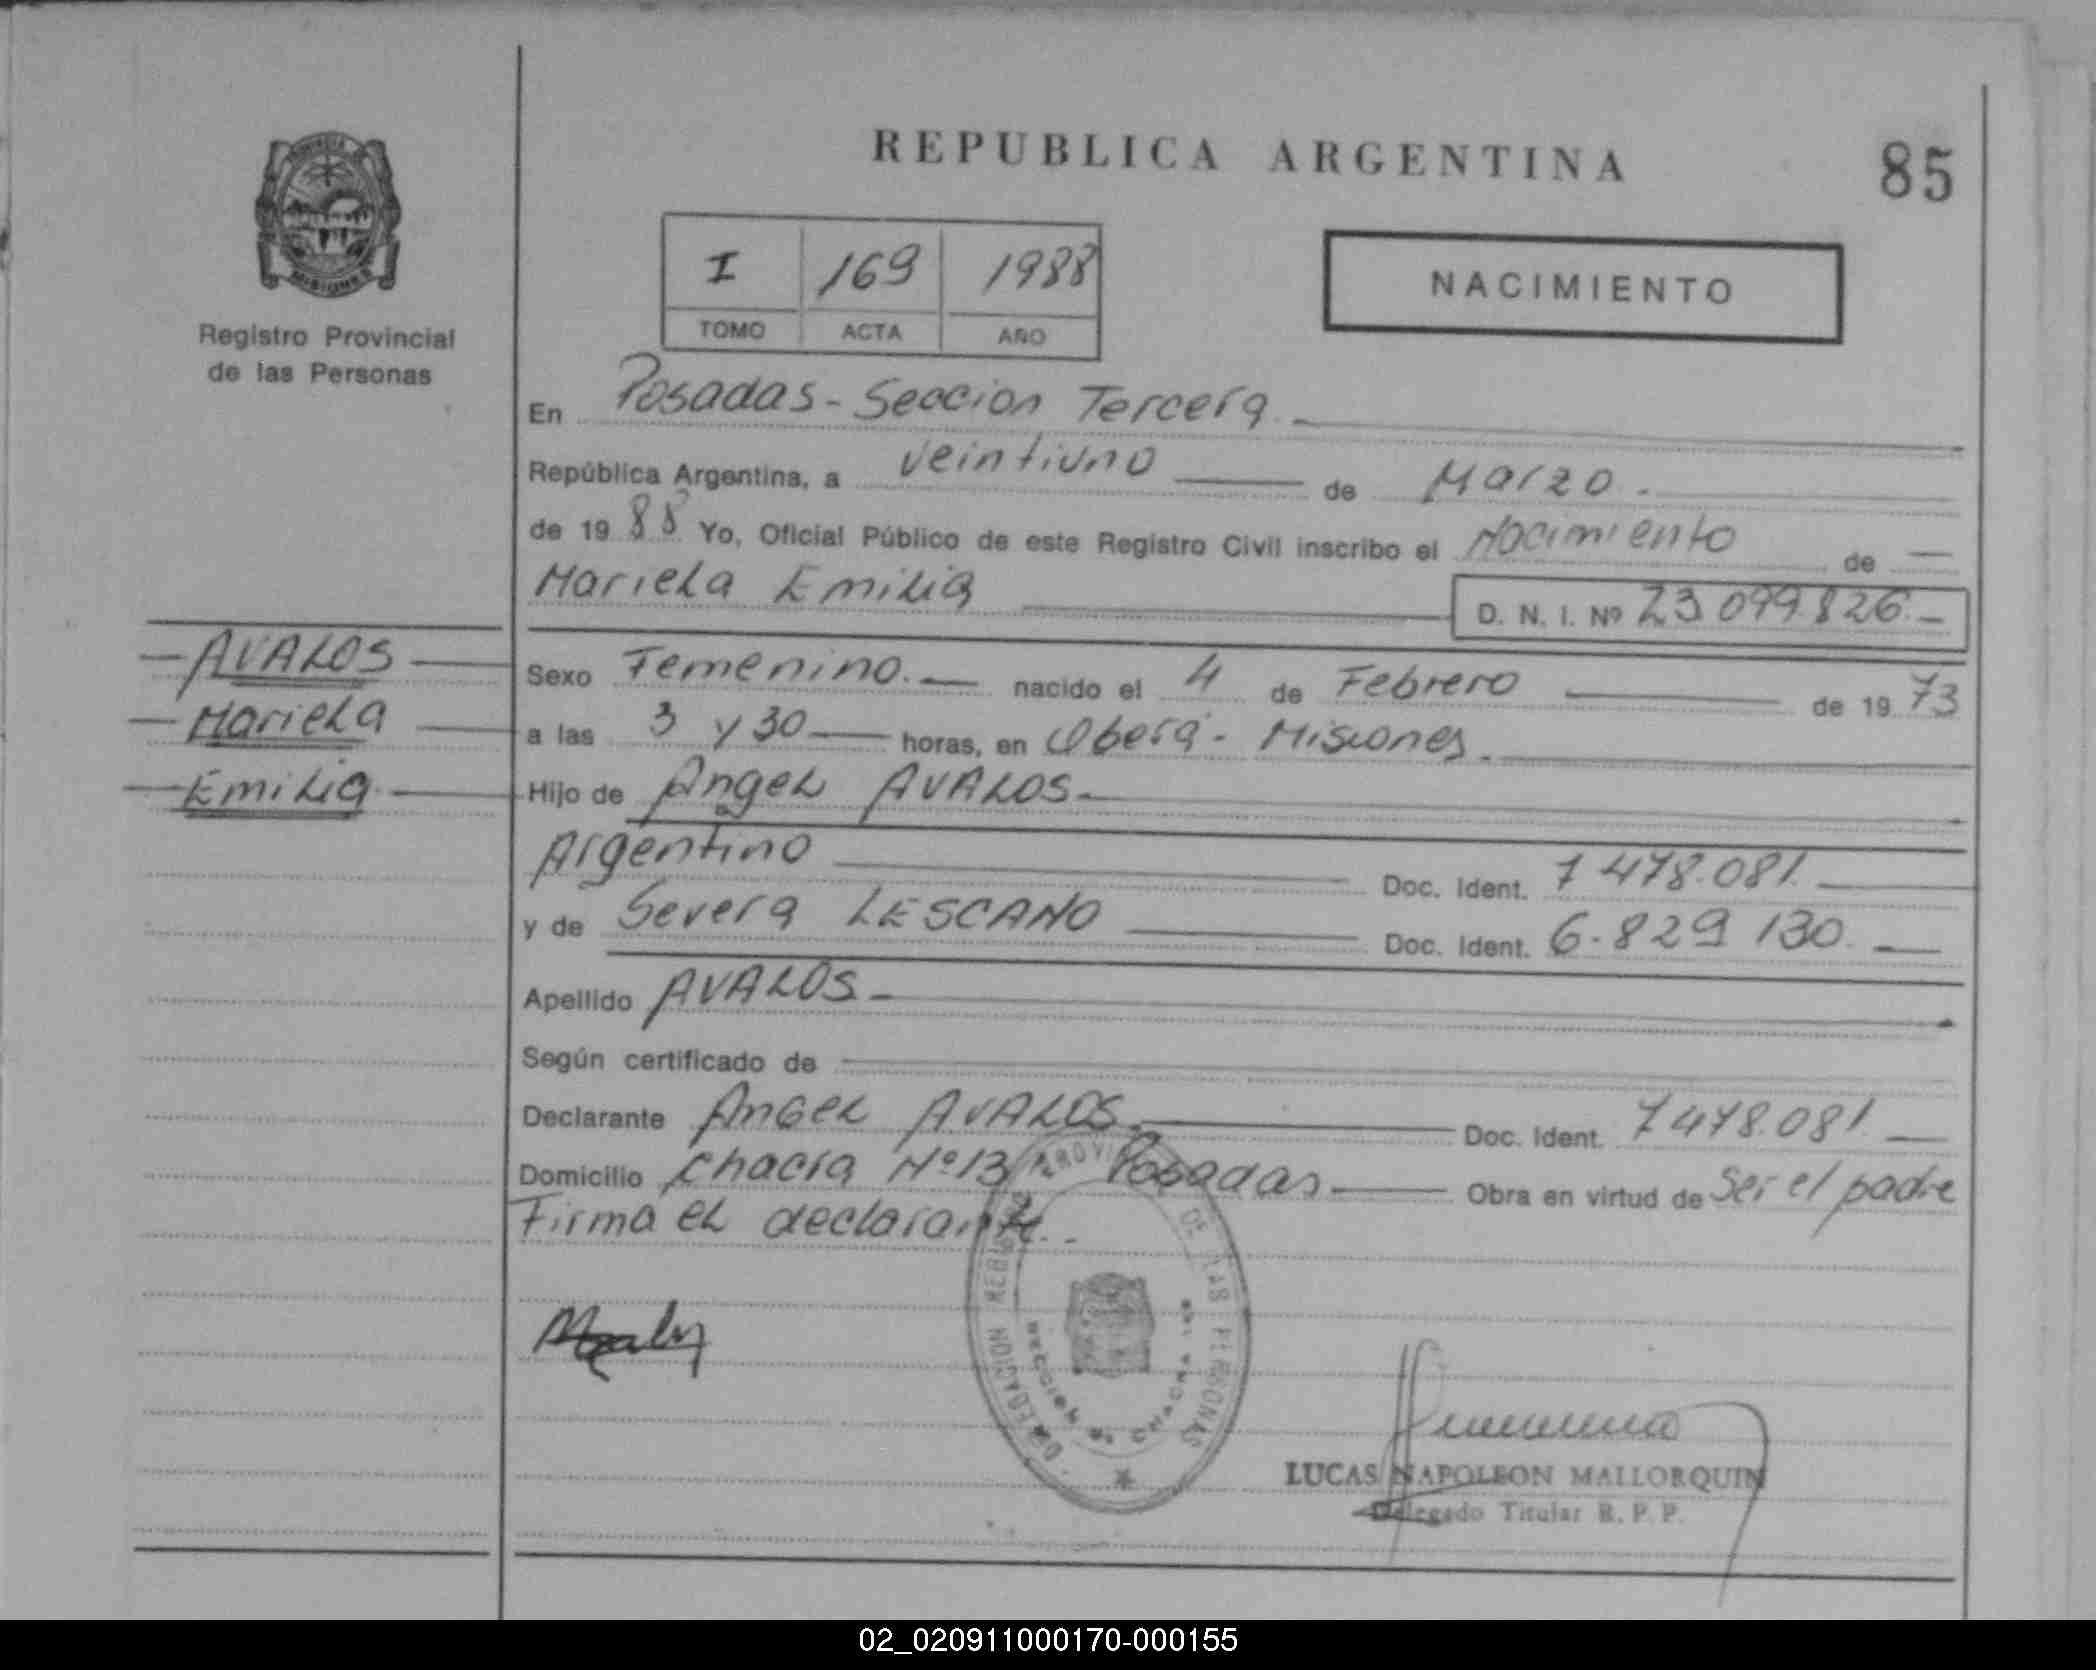 REPUBLICA ARGENTINA
85
I 169 1988
TOMO ACTA AÑO
NACIMIENTO
Registro Provincial
de las Personas
En Posadas - Seccion Tercera
República Argentina, a veintiuno de Marzo.
de 19 88 Yo, Oficial Público de este Registro Civil inscribo el Nacimiento de
Mariela Emilia D. N. I. Nº 23 099 826
AVALOS
Mariela
Emilia
Sexo Femenino. nacido el 4 de Febrero de 19 73
a las 3 y 30 horas, en Oberá - Misiones.
Hijo de Angel AVALOS
Argentino Doc. Ident. 7 478.081.
y de Severa LESCANO Doc. Ident. 6.829 130.
Apellido AVALOS
Según certificado de
Declarante Angel AVALOS. Doc. Ident. 7 478.081.
Domicilio chacra Nº 13 Posadas Obra en virtud de Ser el padre
Firma el declarante.
PROVINCIAL DE LAS PERSONAS
SECCION CHACRA
LUCAS NAPOLEON MALLORQUIN
Delegado Titular R. P. P.
02_020911000170-000155